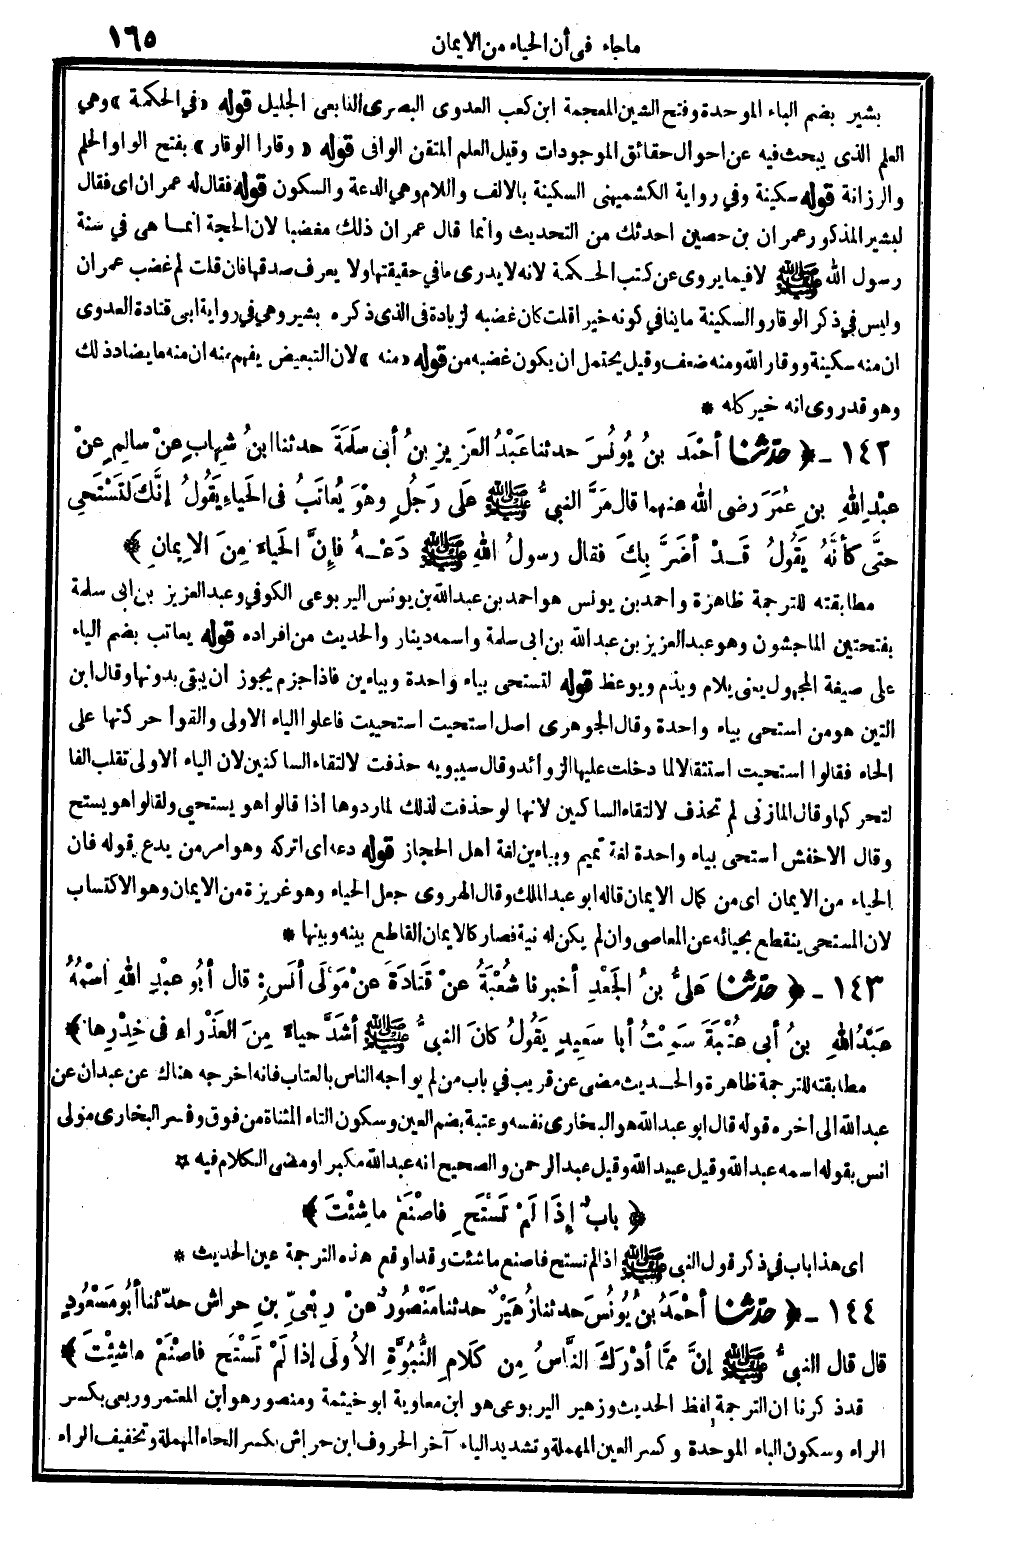 ماجاء فى أن الحياء من الايمان
١٦٥
بشير بضم الباء الموحدة وفتح الشين المعجمة ابن كعب العدوى البصرى التابعى الجليل قوله «فى الحكمة» وهى
العلم الذى يبحث فيه عن احوال حقائق الموجودات وقيل العلم المتقن الوافى قوله «وقارا الوقار» بفتح الواو الحلم
والرزانة قوله سكينة وفي رواية الكشميهنى السكينة بالالف واللام وهي الدعة والسكون قوله فقال له عمران اى فقال
لبشير المذكور عمران بن حصين احدثك من التحديث وانما قال عمران ذلك مغضبا لان الحجة انما هى في سنة
رسول الله ﷺ لا فيما يروى عن كتب الحكمة لانه لا يدرى ما في حقيقتها ولا يعرف صدقها فان قلت لم غضب عمران
وليس في ذكر الوقار والسكينة ما ينافي كونه خيرا قلت كان غضبه لزيادة فى الذى ذكره بشير وهي في رواية ابى قتادة العدوى
ان منه سكينة ووقار الله ومنه ضعف وقيل يحتمل ان يكون غضبه من قوله «منه» لان التبعيض يفهم منه ان منه ما يضاد ذلك
وهو قد روى انه خير كله *
١٤٢ - ﴿ حَدَّثَنَا أحْمَدُ بنُ يُونُسَ حدثنا عَبْدُ العَزِيزِ بنُ أبى سلَمَةَ حدثنا ابنُ شِهابٍ عنْ سالِمٍ عنْ
عبْدِ اللهِ بنِ عُمَرَ رضى الله عنهما قال مَرَّ النبىُّ ﷺ علَى رَجُلٍ وهْوَ يُعاتَبُ فى الحَياءِ يَقُولُ إنَّكَ لَتَسْتَحِي
حتَّى كأنَّهُ يَقُولُ قَدْ أضَرَّ بِكَ فقال رسولُ اللهِ ﷺ دَعْهُ فإنَّ الحَياءَ مِنَ الايمانِ ﴾
مطابقته للترجمة ظاهرة واحمد بن يونس هو احمد بن عبد الله بن يونس اليربوعى الكوفي وعبد العزيز بن ابى سلمة
بفتحتين الماجشون وهو عبد العزيز بن عبد الله بن ابى سلمة واسمه دينار والحديث من افراده قوله يعاتب بضم الياء
على صيغة المجهول يعنى يلام ويذم ويوعظ قوله لتستحى بياء واحدة وبياءين فاذا جزم يجوز ان يبقى بدونها وقال ابن
التين هو من استحى بياء واحدة وقال الجوهرى اصل استحيت استحييت فاعلوا الياء الاولى والقوا حركتها على
الحاء فقالوا استحيت استثقالا لما دخلت عليها الزوائد وقال سيبويه حذفت لالتقاء الساكنين لان الياء الاولى تقلب الفا
لتحركها وقال المازنى لم تحذف لالتقاء الساكنين لانها لو حذفت لذلك لما ردوها اذا قالوا هو يستحيى ولقالوا هو يستح
وقال الاخفش استحى بياء واحدة لغة تميم وبياءين لغة اهل الحجاز قوله دعه اى اتركه وهو امر من يدع قوله فان
الحياء من الايمان اى من كمال الايمان قاله ابو عبد الملك وقال الهروى جعل الحياء وهو غريزة من الايمان وهو الاكتساب
لان المستحى ينقطع بحيائه عن المعاصى وان لم يكن له نية فصار كالايمان القاطع بينه وبينها *
١٤٣ - ﴿ حَدَّثَنَا علىُّ بنُ الجَعْدِ أخبرنا شُعْبَةُ عنْ قَتادَةَ عنْ مَوْلَى أنَسٍ: قال أبُو عبْدِ اللهِ اسْمُهُ
عَبْدُ اللهِ بنُ أبى عُتْبَةَ سَمِعْتُ أبا سَعِيدٍ يَقُولُ كانَ النبىُّ ﷺ أشَدَّ حياءً مِنَ العَذْراءِ فى خِدْرِها ﴾
مطابقته للترجمة ظاهرة والحديث مضى عن قريب في باب من لم يواجه الناس بالعتاب فانه اخرجه هناك عن عبدان عن
عبد الله الى اخره قوله قال ابو عبد الله هو البخارى نفسه وعتبة بضم العين وسكون التاء المثناة من فوق وفسر البخارى مولى
انس بقوله اسمه عبد الله وقيل عبيد الله وقيل عبد الرحمن والصحيح انه عبد الله مكبرا ومضى الكلام فيه *
﴿ بابٌ إذَا لَمْ تَسْتَحِ فاصْنَعْ ما شِئْتَ ﴾
اى هذا باب في ذكر قول النبى ﷺ اذا لم تستح فاصنع ما شئت وقد اوقع هذه الترجمة عين الحديث *
١٤٤ - ﴿ حَدَّثَنَا أحْمَدُ بنُ يُونُسَ حدثنا زُهَيْرٌ حدثنا مَنْصُورٌ عنْ رِبْعِىِّ بنِ حِراشٍ حدّثنا أبُو مَسْعُودٍ
قال قال النبىُّ ﷺ إنَّ مِمَّا أدْرَكَ النَّاسُ مِن كَلامِ النُّبُوَّةِ الأُولَى إذا لَمْ تَسْتَحِ فاصْنَعْ ما شِئْتَ ﴾
قد ذكرنا ان الترجمة لفظ الحديث وزهير اليربوعى هو ابن معاوية ابو خيثمة ومنصور هو ابن المعتمر وربعى بكسر
الراء وسكون الباء الموحدة وكسر العين المهملة وتشديد الياء آخر الحروف ابن حراش بكسر الحاء المهملة وتخفيف الراء